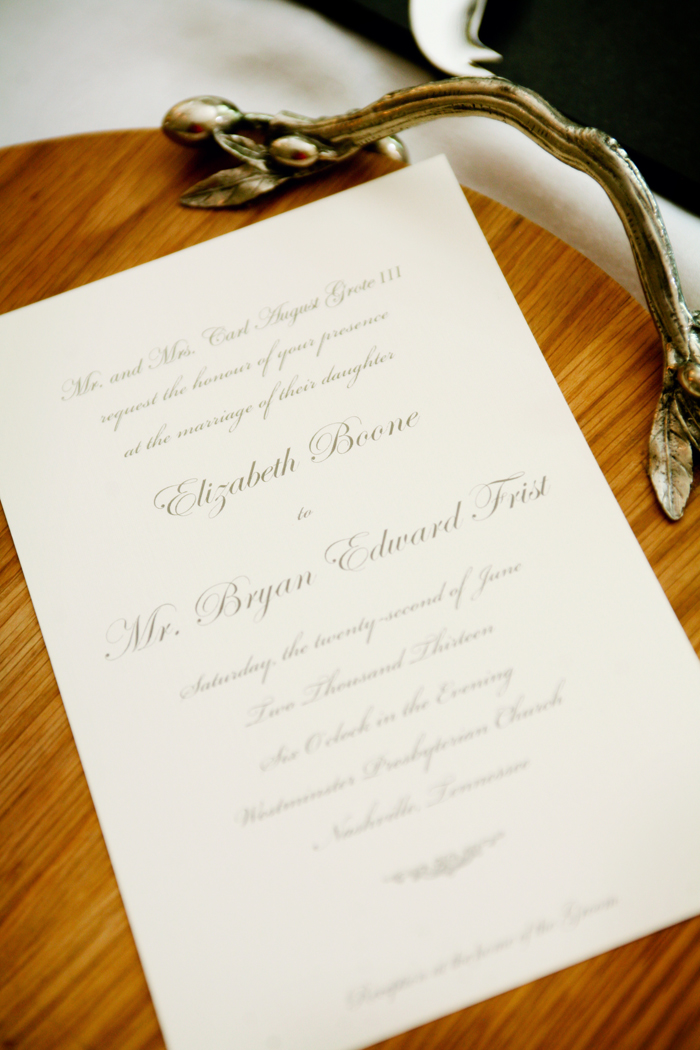 Mr. and Mrs. Carl August Grote III
request the honour of your presence
at the marriage of their daughter
Elizabeth Boone
to
Mr. Bryan Edward Frist
Saturday, the twenty-second of June
Two Thousand Thirteen
Six O'clock in the Evening
Westminster Presbyterian Church
Nashville, Tennessee
Reception at the home of the Groom